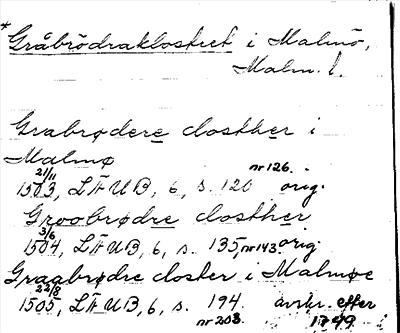 *Gråbrödraklostret i Malmö,
Malm. l.
Grabrødere closther i
Malmø
21/11 nr 126.
1503, LÄUB, 6, s. 120 orig.
Groobrødre closther
3/6
1504, LÄUB, 6, s. 135, nr 143 orig
Graabrødre closter i Malmøe
22/8
1505, LÄUB, 6, s. 194. avskr. efter
nr 203. 1749